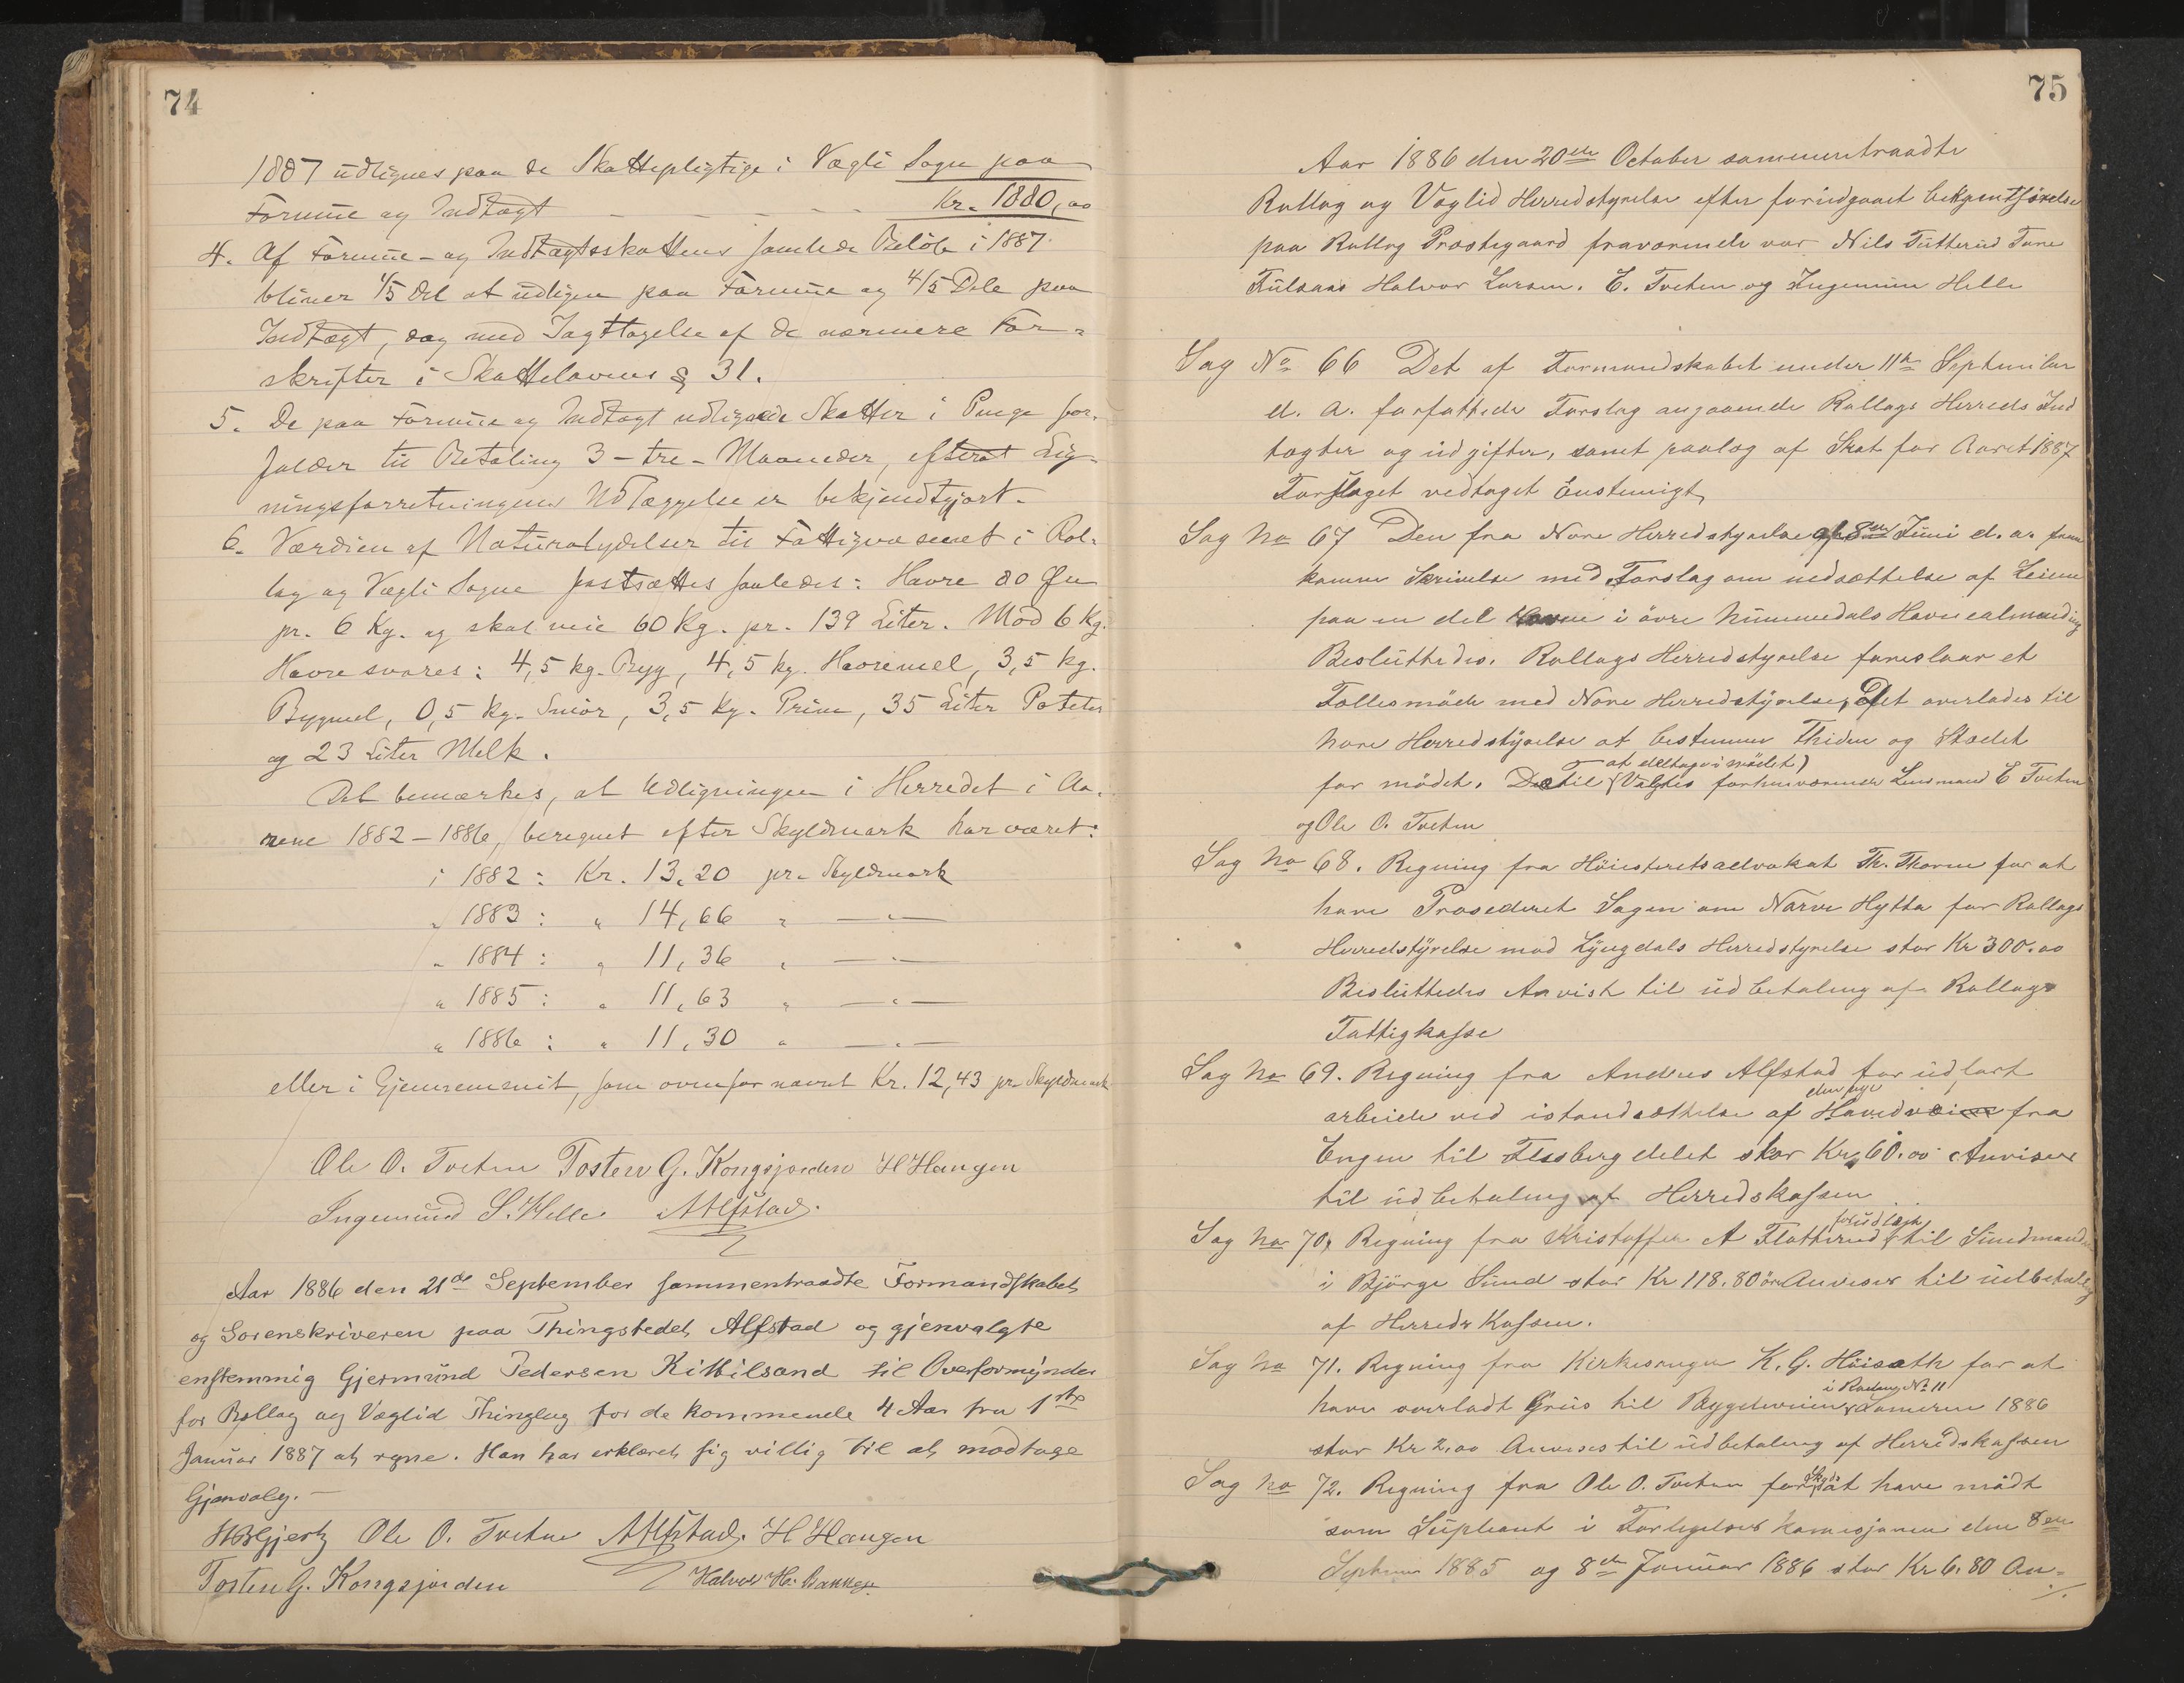 74
1887 udlignes paa de Skattepligtige i Vægli Sogn paa
Formue og Indtægt - - - - - Kr. 1880,00
4. Af Formue- og Indtægtsskattens samlede Beløb i 1887
bliver 1/5 Del at udligne paa Formue og 4/5 Dele paa
Indtægt, dog med Iagttagelse af de nærmere For-
skrifter i Skattelovens § 31.
5. De paa Formue og Indtægt udlignede Skatter i Penge for-
falder til Betaling 3-tre-Maaneder, efterat Lig-
ningsforretningens Udlæggelse er bekjendtgjort.
6. Værdien af Naturalydelser til Fattigvæsenet i Rol-
lag og Vægli Sogne fastsættes saaledes: Havre 80 Øre
pr. 6 Kg. og skal veie 60 Kg. pr. 139 Liter. Mod 6 Kg.
Havre svares: 4,5 kg. Byg, 4,5 kg. Havremel, 3,5 kg.
Bygmel, 0,5 kg. Smør, 3,5 kg. Prim, 35 Liter Poteter
og 23 Liter Melk.
Det bemærkes, at Udligningen i Herredet i Aa-
rene 1882-1886, beregnet efter Skyldmark har været:
i 1882: Kr. 13,20 pr. Skyldmark
" 1883: " 14,66 " —"—
" 1884: " 11,36 " —"—
" 1885: " 11,63 " —"—
" 1886: " 11,30 " —"—
eller i Gjennemsnit, som ovenfor nævnt Kr. 12,43 pr. Skyldmark
Ole O. Tveten Tosten G. Kongsjorden H Haugen
Ingemund S. Helle AAlfstad.
Aar 1886 den 21de September sammentraadte Formandskabet
og Sorenskriveren paa Thingstedet Alfstad og gjenvalgte
enstemmig Gjermund Pedersen Kittilsand til Overformynder
for Rollag og Væglid Thinglag for de kommende 4 Aar fra 1ste
Januar 1887 at regne. Han har erklæret sig villig til at modtage
Gjenvalg.-
Hjertz Ole O. Tveten AAlfstad. H Haugen
Tosten G. Kongsjorden Halvor H. Bakken
75
Aar 1886 den 20de October sammentraadte
Rollag og Væglid Herredstyrelse efter foriudgaaet bekjentjørelse
paa Rollag Præstegaard fraværende var Nils Tütterud Tore
Fulsaas Halvor Larsen. E. Tveten og Ingemün Helle
Sag No 66 Det af Formandskabet under 11te September
d. a. forfattede Forslag angaaende Rollags Herreds Ind
tægter og udgifter, samt paalæg af Skat for Aaret 1887
Forslaget vedtaget Enstemigt
Sag No 67 Den fra Nore Herredstyrelse af 8de Juni d. a. frem
komne Skrivelse med Forslag om nedsættelse af Leien
paa en del Havne i øvre Nummedals Havnealmending
Besluttedes. Rollags Herredstyrelse foreslaar et
Fællesmøde med Nore Herredstyrelse, Det overlades til
Nore Herredstyrelse at bestemme Thiden og Stædet
at deltage i mødet)
for mødet. Dertil (Valgtes forhenværende Lensmand E Tveten
og Ole O. Tveten
Sag No 68. Regning fra Høiesteretsadvokat Th. Thorne for at
have Prosederet Sagen om Narve Hytta for Rollags
Herredstyrelse mod Lyngdals Herredstyrelse stor Kr 300.00
Besluttedes Anvist til udbetaling af Rollags
Fattigkasse
Sag No 69. Regning fra Andres Alfstad for udført
den nye
arbeide ved istandsættelse af Hovedveien fra
Engen til Flesbergdelet stor Kr. 60.00 Anvises
til udbetaling af Herredskassen
for udlæg
Sag No 70. Regning fra Kristoffer A Flatterud til Sundmanden
i Bjørge Sund stor Kr 118.80 øre Anvises til udbetaling
af Herreds Kassen.
Sag No 71. Regning fra Kirkesanger K. G. Høisæth for at
i Rodeng No 11
have overladt Grus til Bygdeveien Sommeren 1886
stor Kr 2,00 Anvises til udbetaling af Herredskassen
Sag No 72. Regning fra Ole O. Tveten for at have mødt
som Supleant i Forligelses komisjonen den 8de
Septem 1885 og 8de Januar 1886 stor Kr 6.80 An-